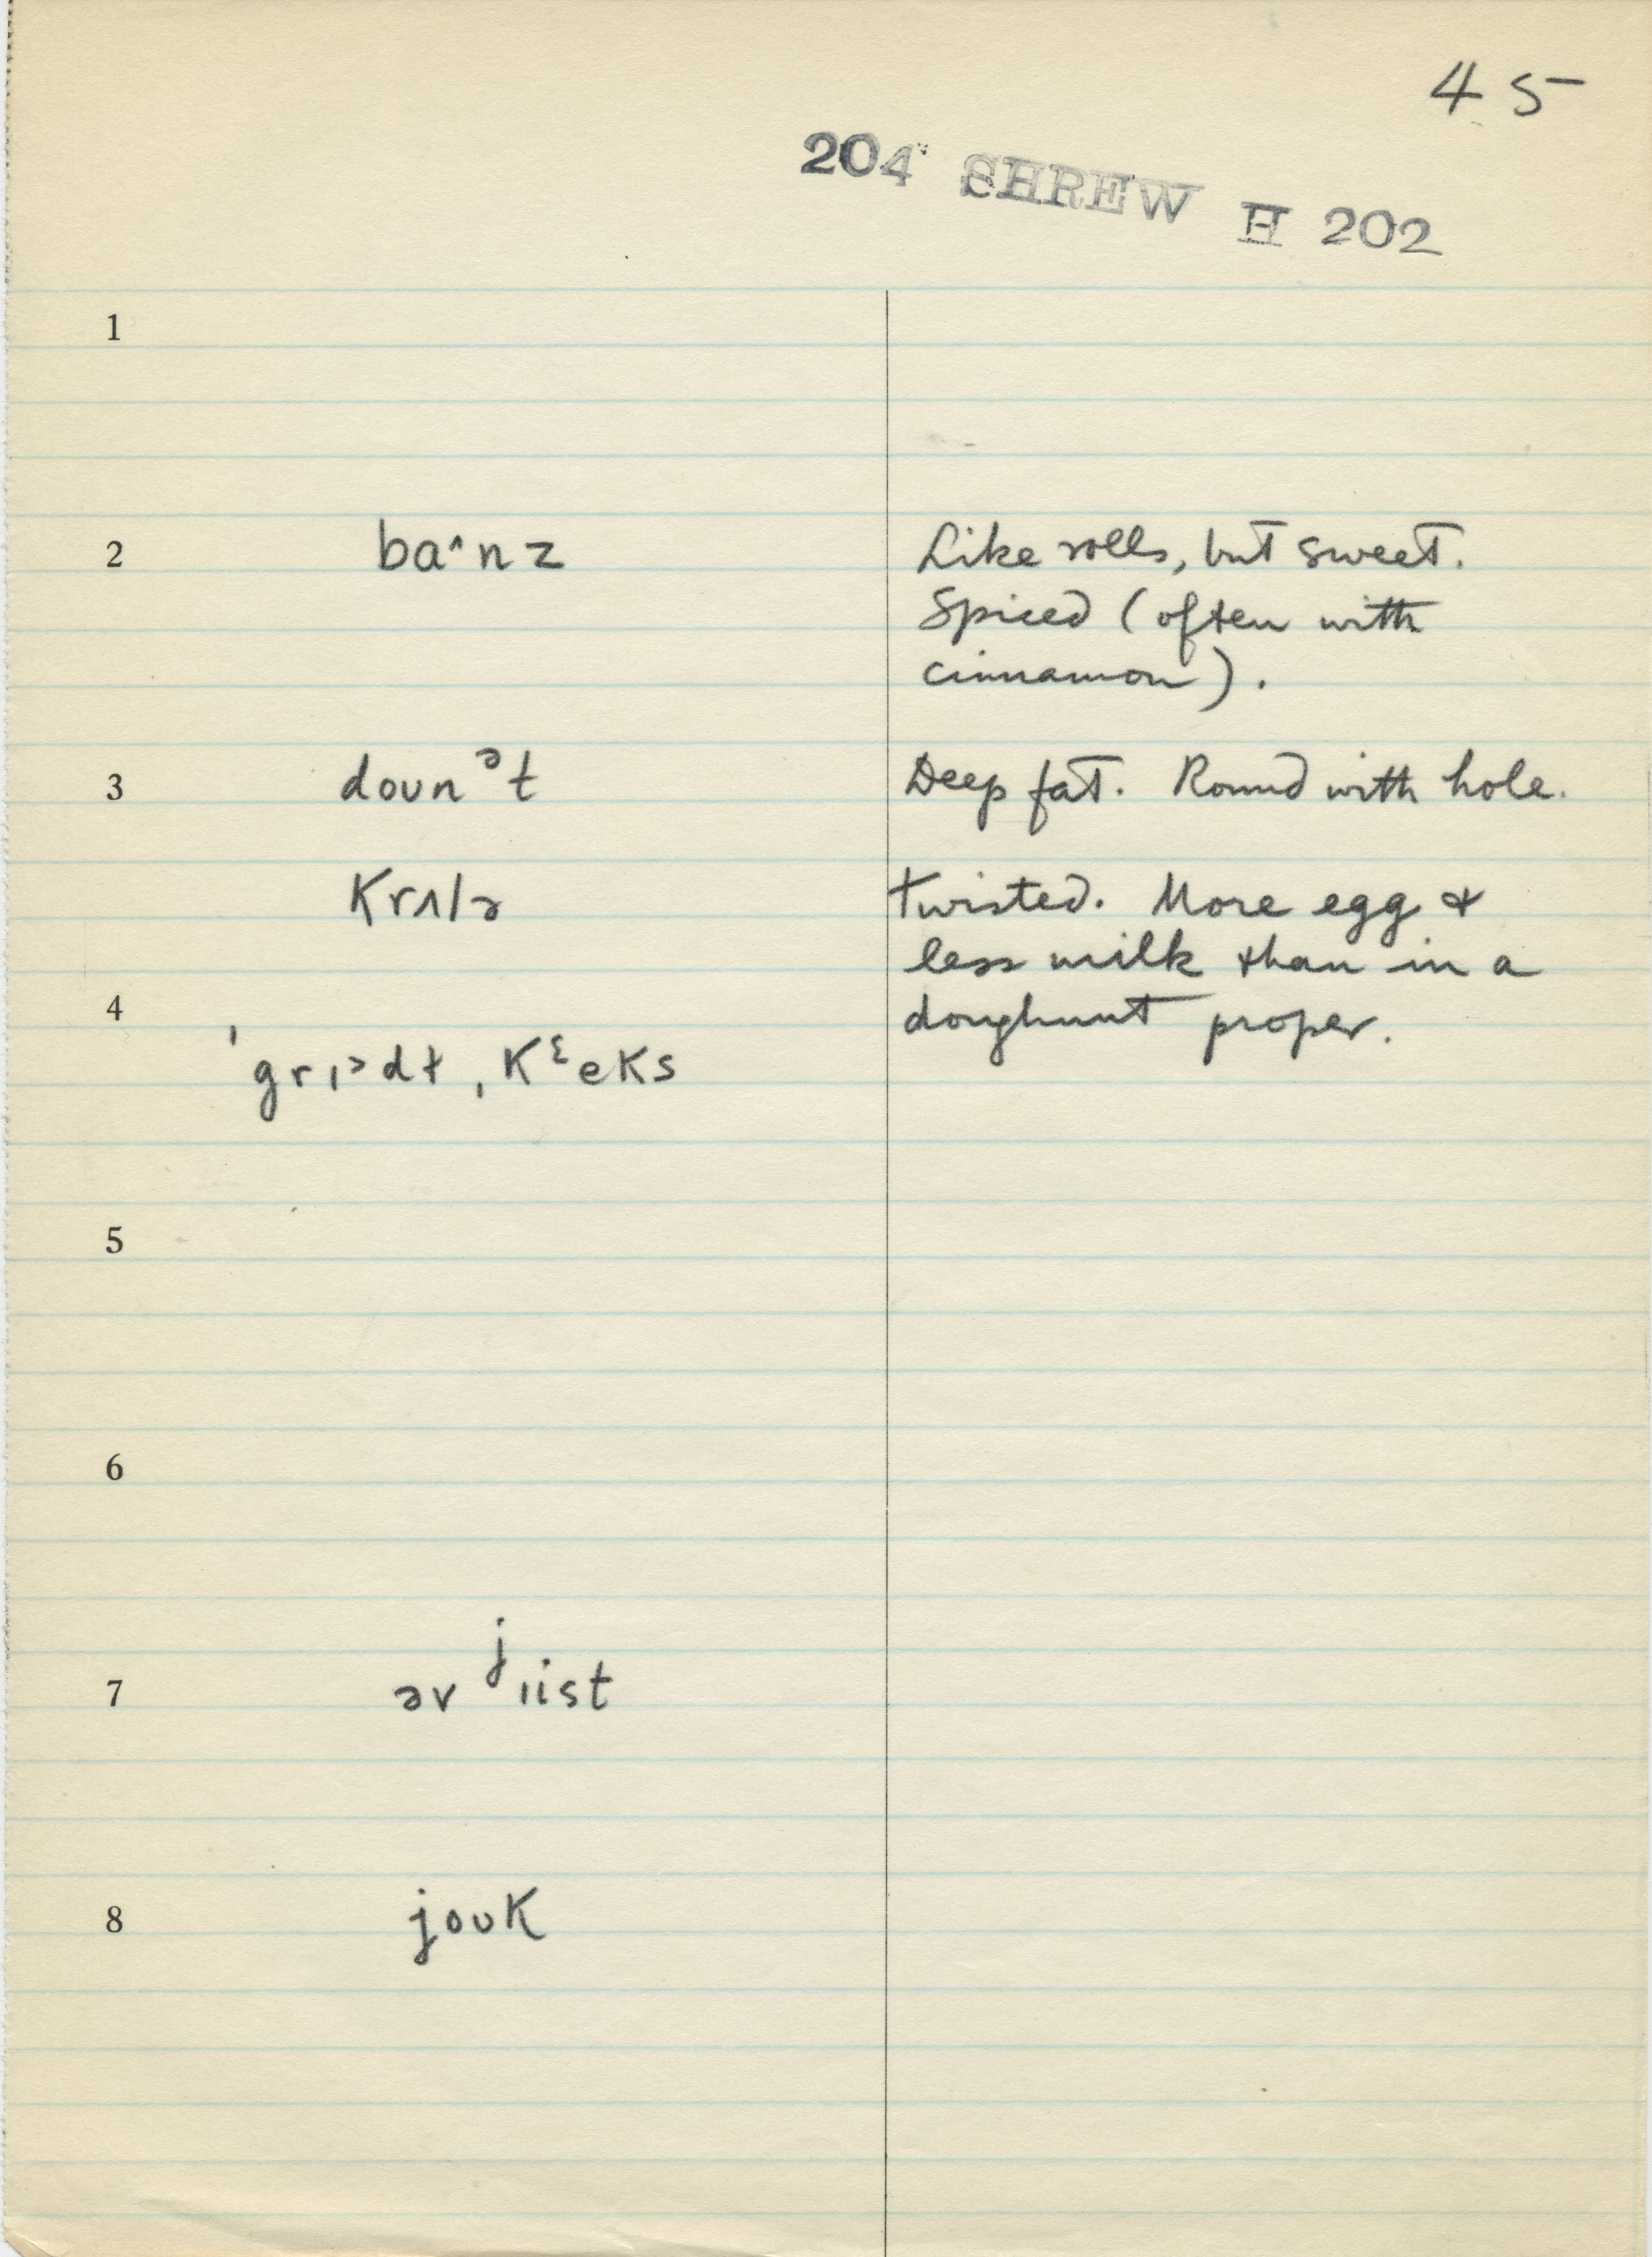 45
204 SHREW H 202
1
2 ba^nz Like rolls, but sweet.
Spiced (often with
cinnamon).
3 dounᵊt Deep fat. Round with hole.
krʌlə twisted. More egg &
less milk than in a
4 doughnut proper.
ˈgrɪ˃dɫ ˌkᵋeks
5
6
7 əv ʲɪist
8 jouk